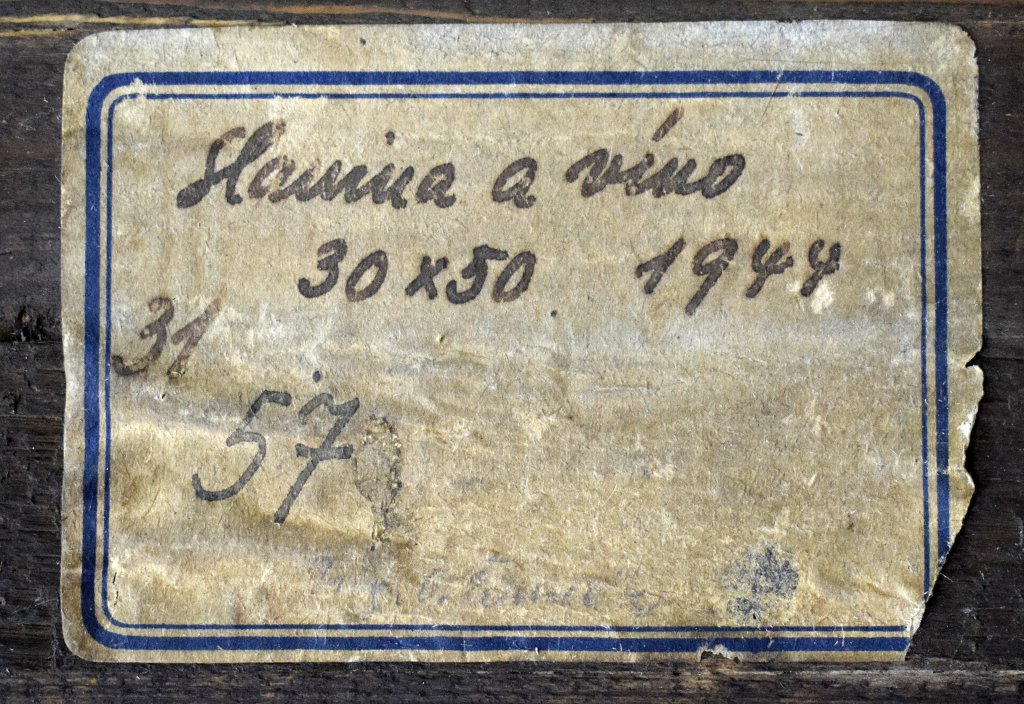 Slanina a víno
30 x 50 1944
31
57